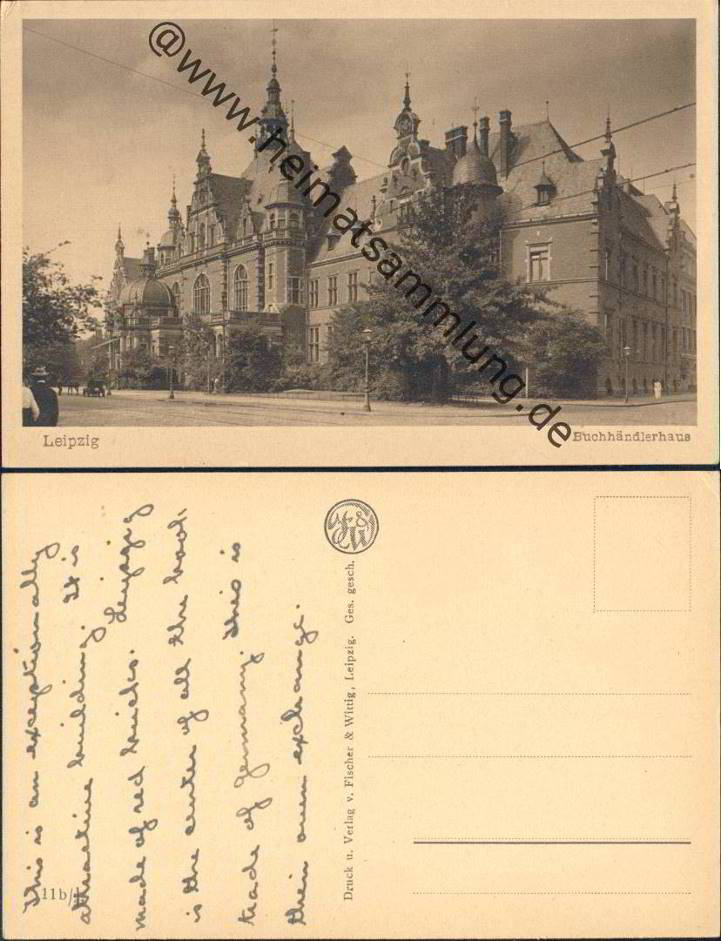 @www.heimatsammlung.de
Leipzig
Buchhändlerhaus
This is an exceptionally
attractive building. It is
made of red bricks. Leipzig
is the center of all the book
trade of Germany. This is
their own exchange.
11b/
Druck u. Verlag v. Fischer & Wittig, Leipzig. Ges. gesch.